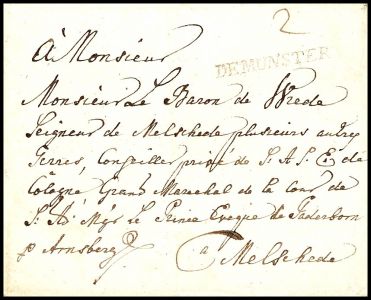 2
DE MUNSTER
À Monsieur
Monsieur Le Baron de Wrede
Seigneur de Melschede plusieurs autres
Terres, Conseiller privé de S: A: S: E: de
Cologne Grand Marechal de la Cour de
S: A: Mgr le Prince Eveque de Paderborn
p Arnsberg
a Melschede